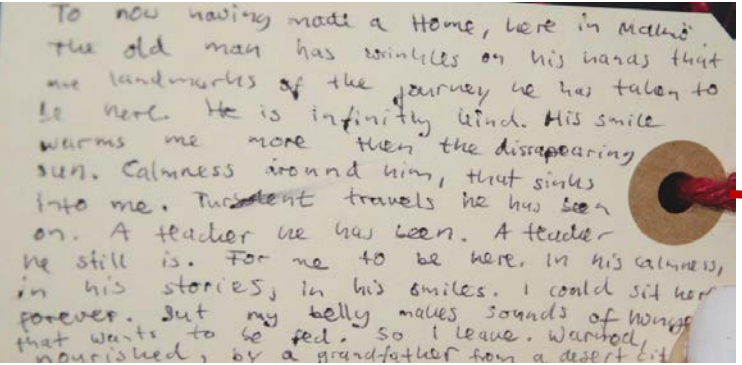 To now having made a Home, here in Malmö.
The old man has wrinkles on his hands that
are landmarks of the journey he has taken to
be here. He is infinitly kind. His smile
warms me more then the dissapearing
sun. Calmness around him, that sinks
into me. travels he has been
on. A teacher he has been. A teacher
he still is. For me to be here. In his calmness,
in his stories, in his smiles. I could sit here
forever. But my belly makes sounds of hunger
that wants to be fed. So I leave. Warmed,
nourished, by a grandfather from a desert